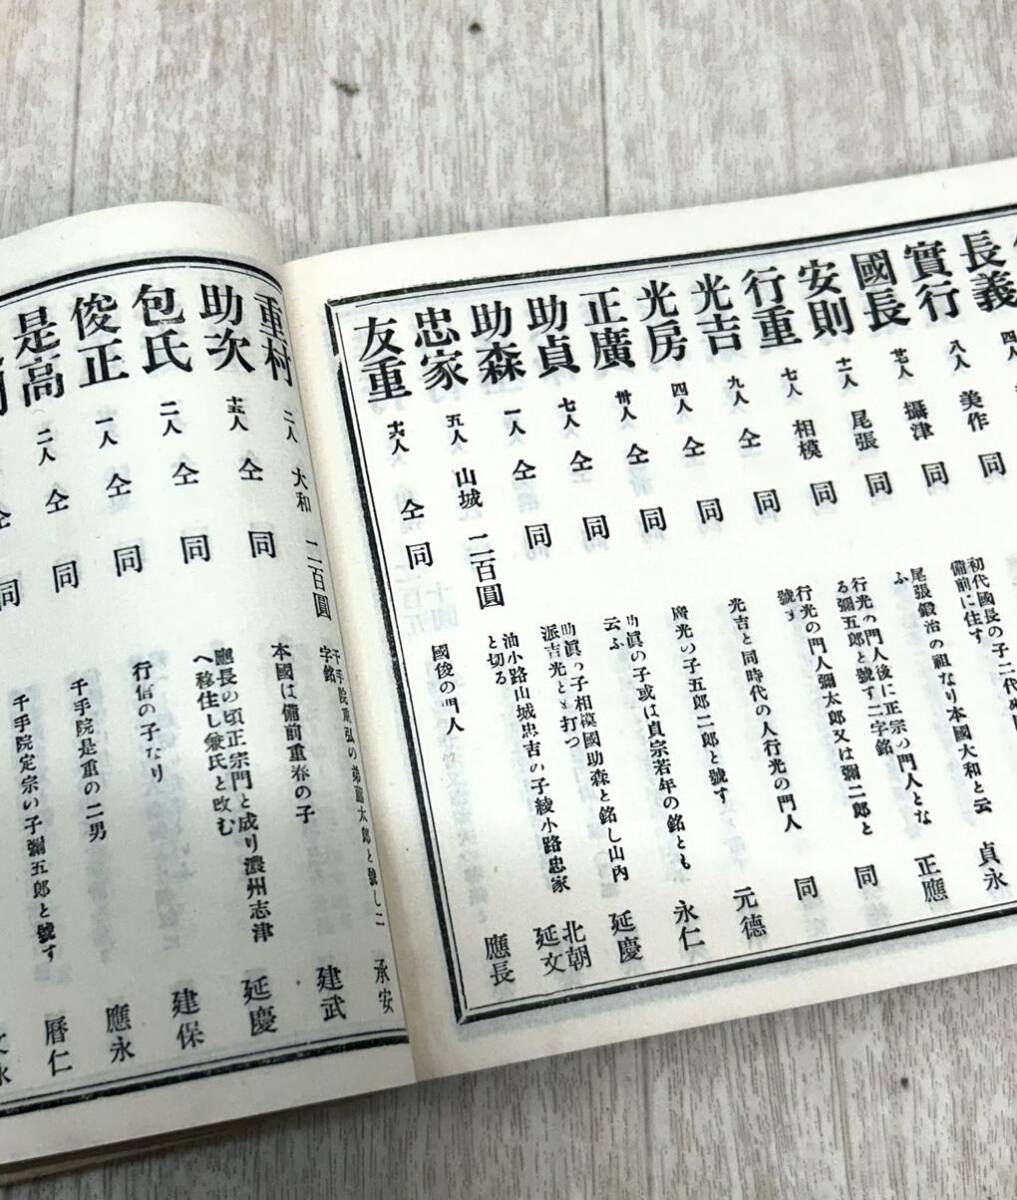 長義 四人
實行 八人 美作 同
國長 人 攝津 同 初代國長の子二代 備前に住す
安則 十一人 尾張 同 尾張鍛冶の祖なり本國大和と云ふ 貞永
行重 七人 相模 同 行光の門人後に正宗の門人となる彌五郎と號す二字銘 正應
光吉 九人 仝 同 行光の門人彌太郎又は彌二郎と號す 同
光房 四人 仝 同 光吉と同時代の人行光の門人 同
正廣 卅人 仝 同 廣光の子五郎二郎と號す 元德
助貞 七人 仝 同 助眞の子或は貞宗若年の銘とも云ふ 永仁
助森 一人 仝 同 助眞の子相模國助森と銘し山内派吉光とも打つ 延慶
忠家 五人 山城 二百圓 油小路山城忠吉の子綾小路忠家と切る 北朝延文
友重 十六人 仝 同 國俊の門人 應長
重村 二人 大和 二百圓 千手院重弘の弟 太郎と號し二字銘 承安
助次 十五人 仝 同 本國は備前重春の子 建武
包氏 二人 仝 同 應長の頃正宗門と成り濃州志津へ移住し兼氏と改む 延慶
俊正 一人 仝 同 行信の子なり 建保
是高 二人 仝 同 千手院是重の二男 應永
仝 同 千手院定宗い子彌五郎と號す 曆仁